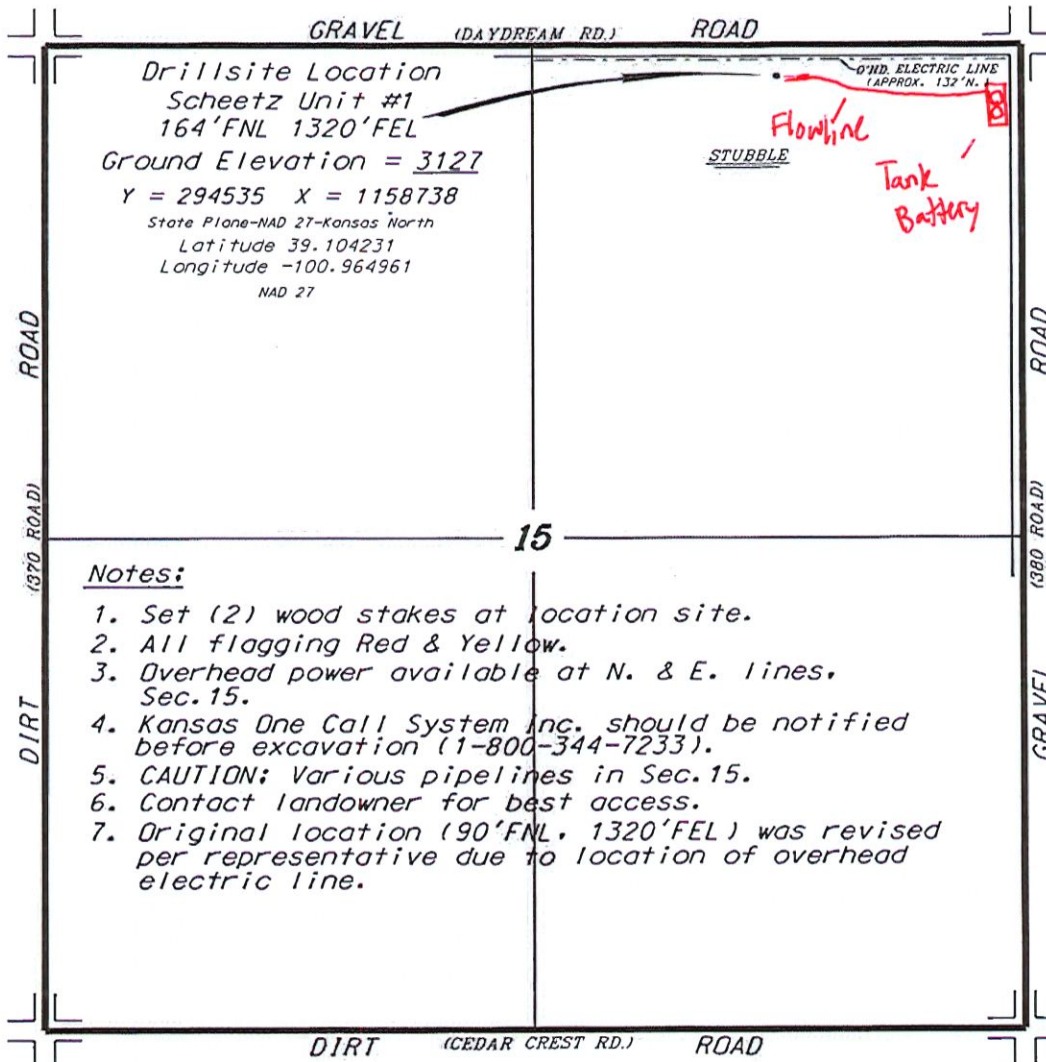 GRAVEL (DAYDREAM RD.) ROAD
Drillsite Location
Scheetz Unit #1
164'FNL 1320'FEL
Ground Elevation = 3127
Y = 294535 X = 1158738
State Plane-NAD 27-Kansas North
Latitude 39.104231
Longitude -100.964961
NAD 27
O'HD. ELECTRIC LINE
(APPROX. 132'N.)
Flowline
STUBBLE
Tank
Battery
ROAD
(370 ROAD)
DIRT
ROAD
(380 ROAD)
GRAVEL
15
Notes:
1. Set (2) wood stakes at location site.
2. All flagging Red & Yellow.
3. Overhead power available at N. & E. lines,
Sec. 15.
4. Kansas One Call System Inc. should be notified
before excavation (1-800-344-7233).
5. CAUTION: Various pipelines in Sec. 15.
6. Contact landowner for best access.
7. Original location (90'FNL, 1320'FEL) was revised
per representative due to location of overhead
electric line.
DIRT (CEDAR CREST RD.) ROAD